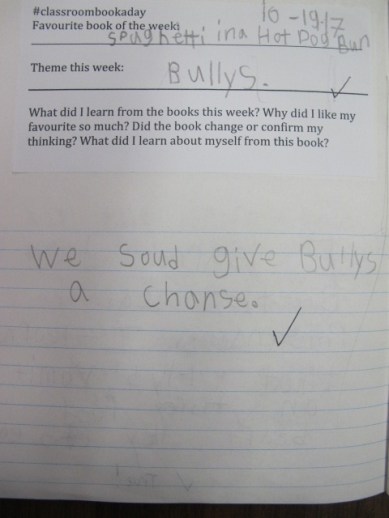 #classroombookaday 10-19-17
Favourite book of the week:
Spughetti in a Hot Dog Bun
Theme this week: Bullys.
What did I learn from the books this week? Why did I like my
favourite so much? Did the book change or confirm my
thinking? What did I learn about myself from this book?
We Soud give Bullys
a chanse.